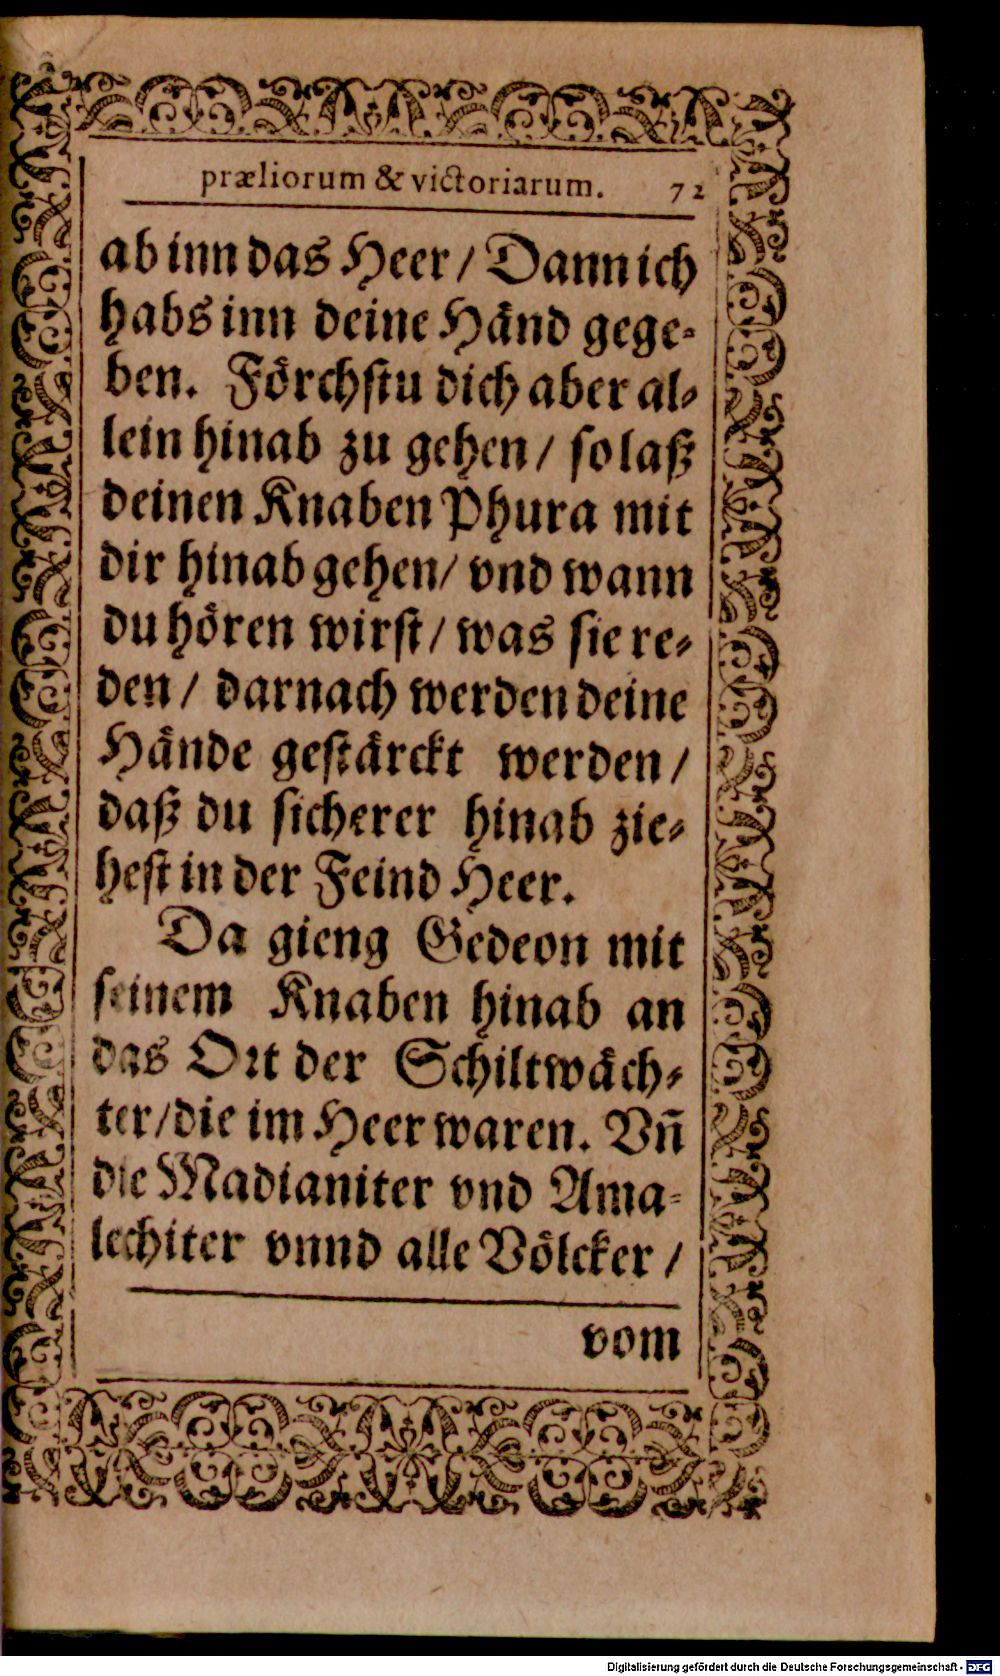 præliorum & victoriarum. 72
ab inn das Heer / Dann ich
habs inn deine Händ gege⸗
ben. Förchstu dich aber al⸗
lein hinab zu gehen / so laß
deinen Knaben Phura mit
dir hinab gehen / vnd wann
du hören wirst / was sie re⸗
den / darnach werden deine
Hände gestärckt werden /
daß du sicherer hinab zie⸗
hest in der Feind Heer.
Da gieng Gedeon mit
seinem Knaben hinab an
das Ort der Schiltwäch⸗
ter / die im Heer waren. Vñ
die Madianiter vnd Ama⸗
lechiter vnnd alle Völcker /
vom
Digitalisierung gefördert durch die Deutsche Forschungsgemeinschaft - DFG